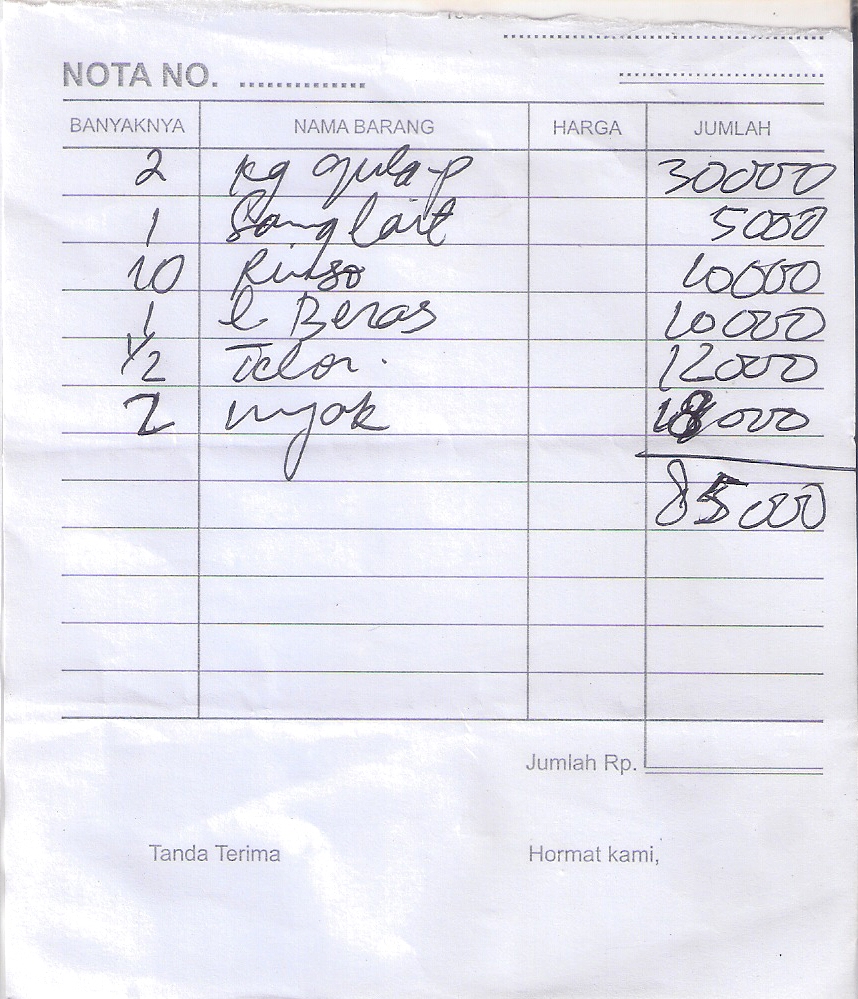 NOTA NO. ................
BANYAKNYA NAMA BARANG HARGA JUMLAH
2 kg gula p 30000
1 Sanglait 5000
10 Rinso 10000
1 l Beras 10000
1/2 Telor. 12000
2 myak 18000
85000
Jumlah Rp.
Tanda Terima Hormat kami,